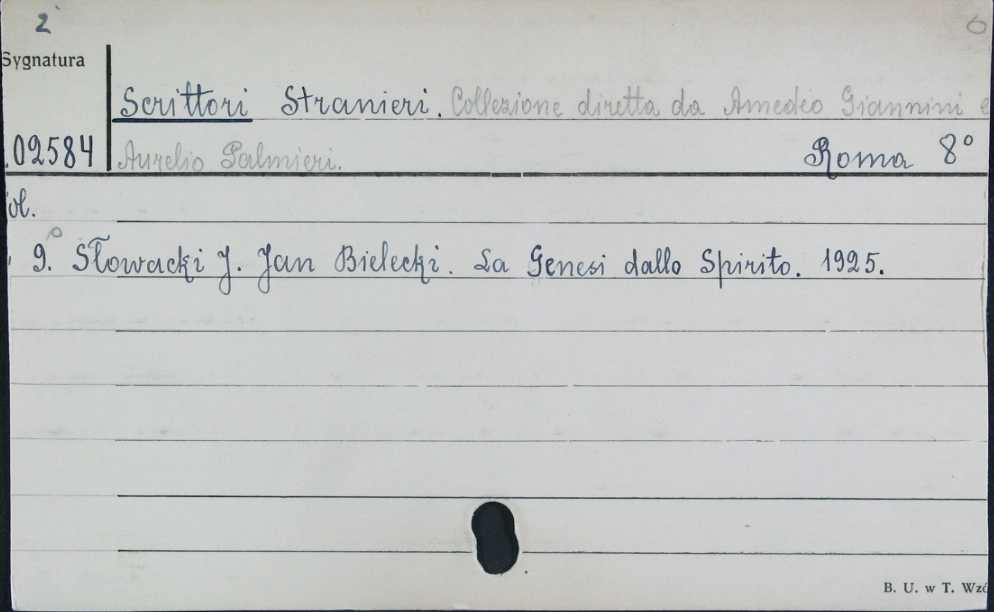 2 6
Sygnatura
Scrittori Stranieri. Collezione diretta da Amedeo Giannini e
02584 Aurelio Palmieri. Roma 8°
ol.
9. Słowacki J. Jan Bielecki. La Genesi dallo Spirito. 1925.
B. U. w T. Wzó